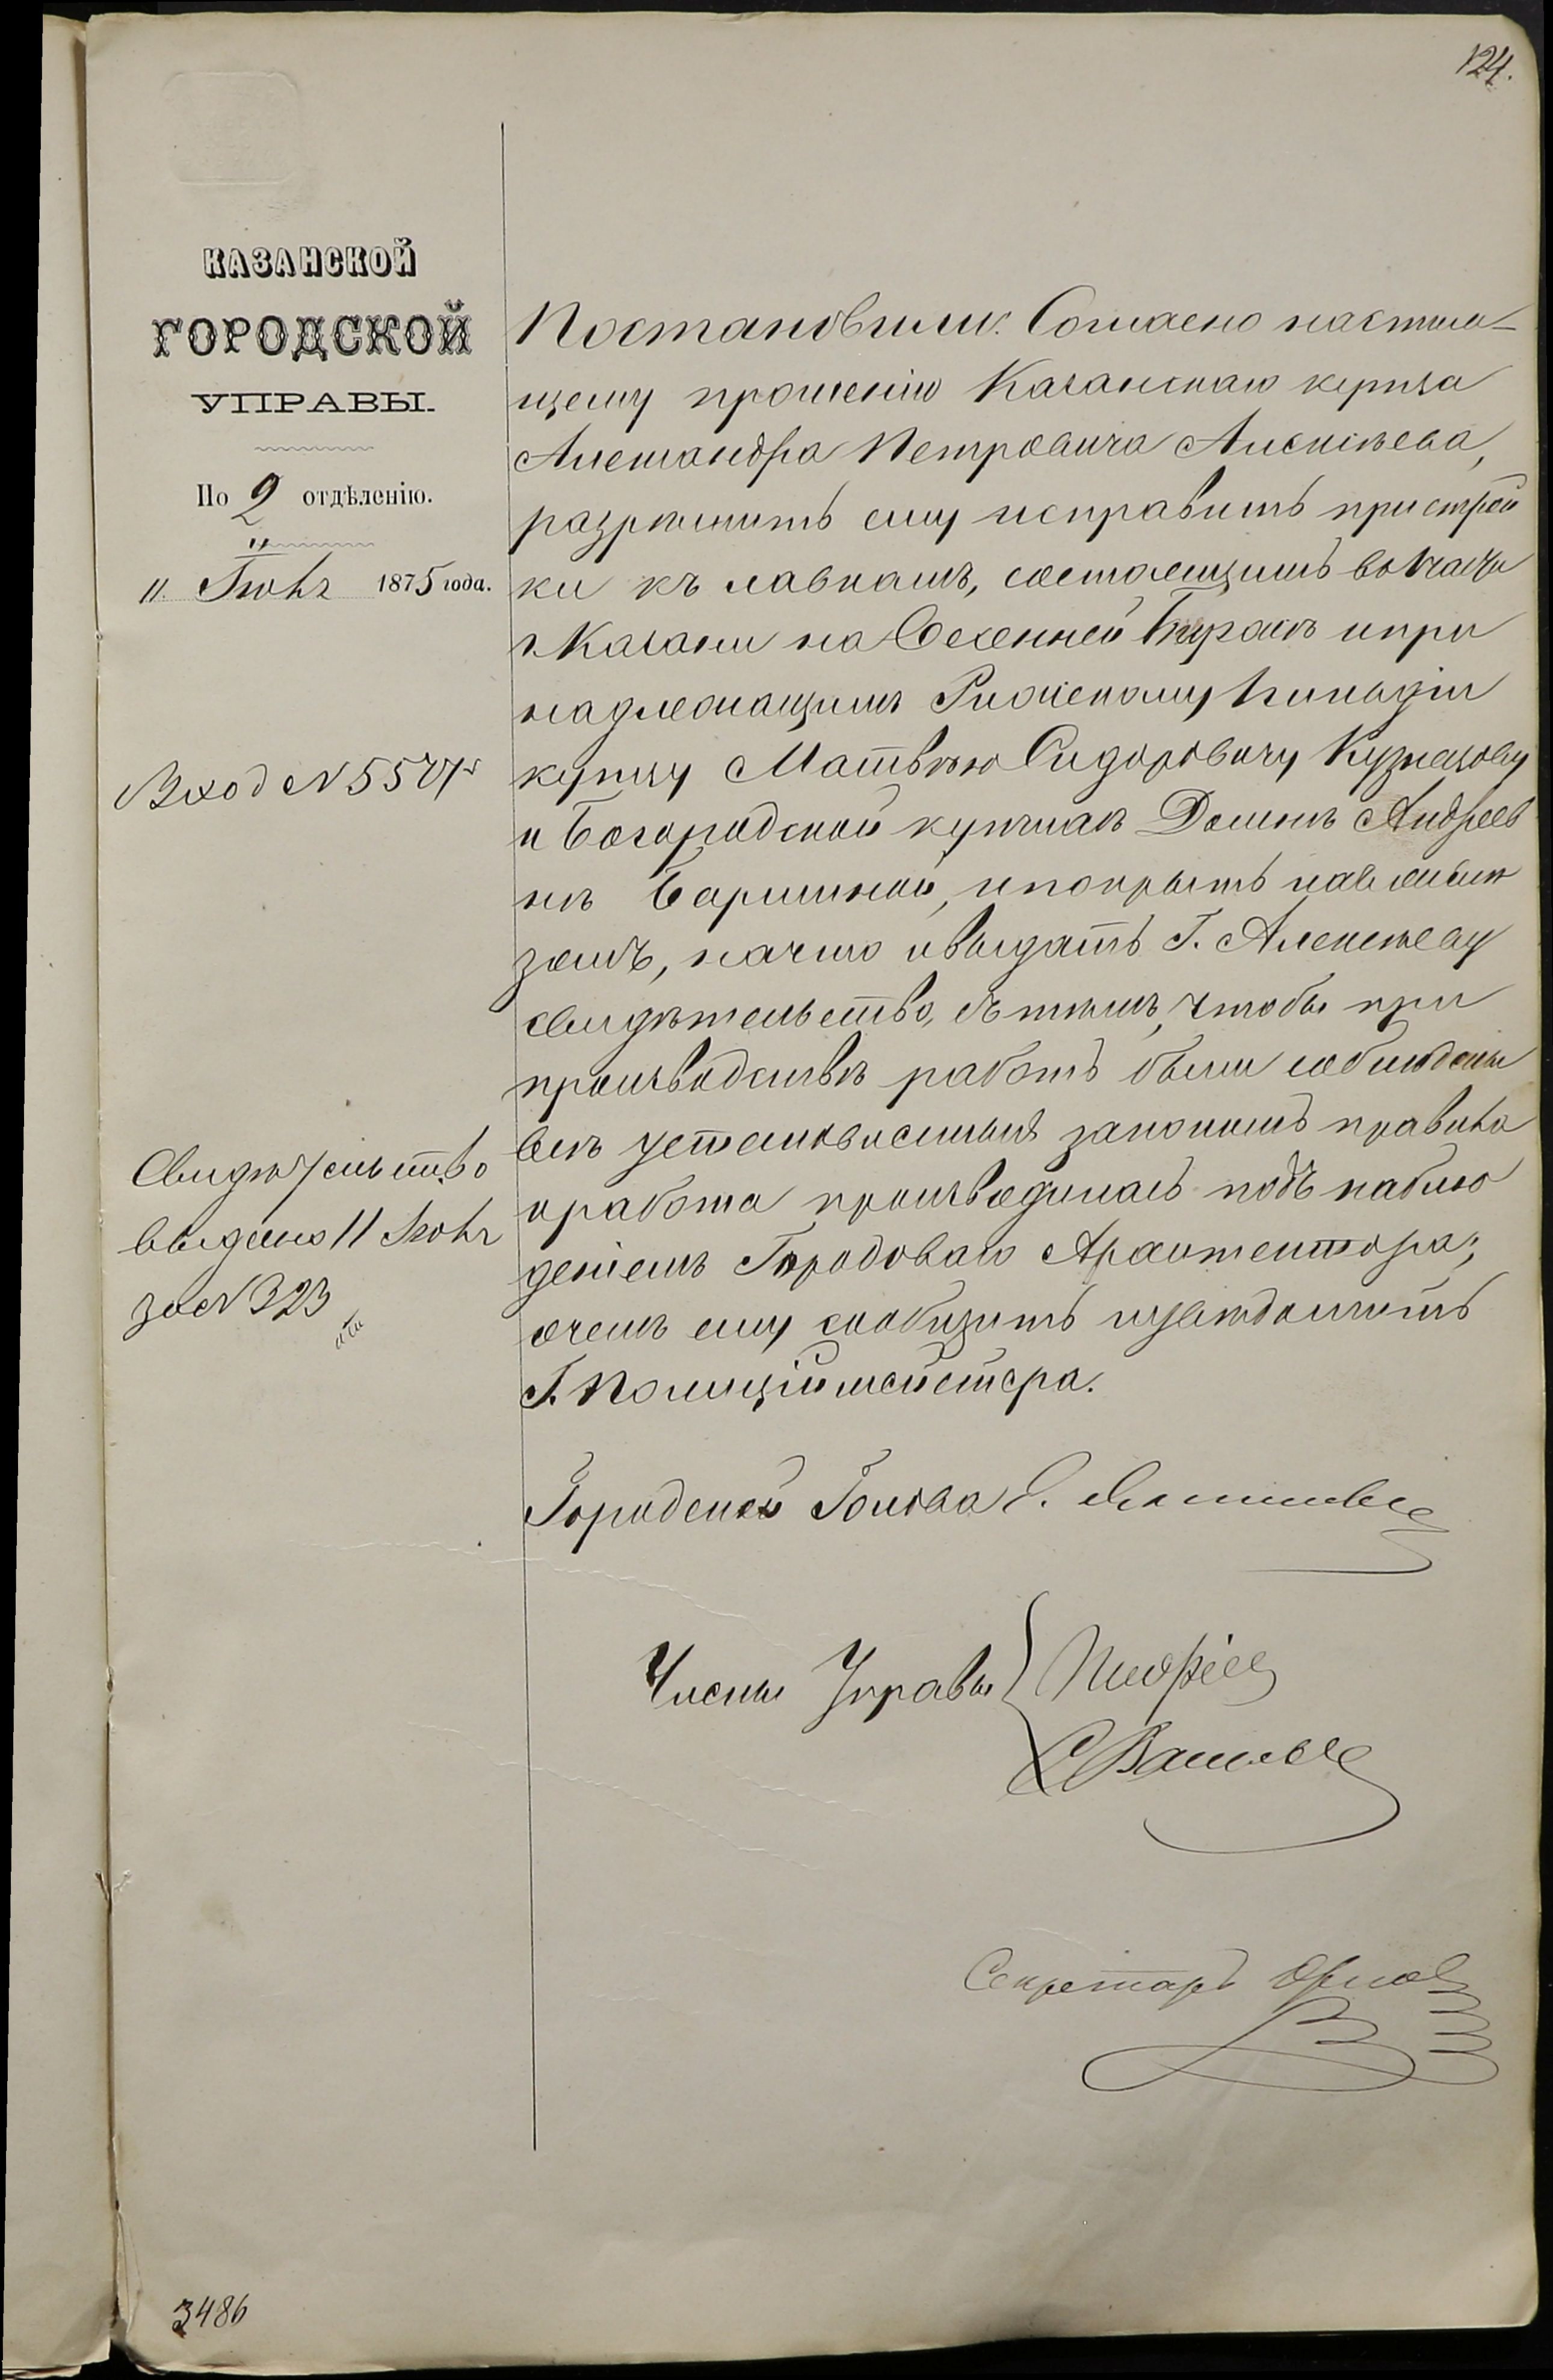 124.
КАЗАНСКОЙ
ГОРОДСКОЙ
УПРАВЫ.
По 2 отдѣленію.
11 Іюня 1875 года.
Вход №
Свидѣтельство
выдано 11 Іюня
за № 323
Постановили: Согласно настоя-
щему прошенію Казанскаго купца
Александра Петровича Алексѣева,
разрѣшить ему исправить пристрой
ки къ лавкамъ, состоящимъ во части
г. Казани на Сенной и при
надлежащимъ купцу Матвѣю Сидоровичу Кузнецову
и Богородской купчихѣ Домнѣ Андреев
нѣ и покрыть
на что и выдать Г. Алексѣеву
свидѣтельство, съ тѣмъ, чтобы при
производствѣ работъ были соблюдены
всѣ установленныя закономъ правила
и работа производилась подъ наблю
деніемъ Городоваго Архитектора;
о чемъ ему сообщить и увѣдомить
Г. Полиціймейстера.
Городской Голова
Члены Управы
Секретарь Орлов
3486